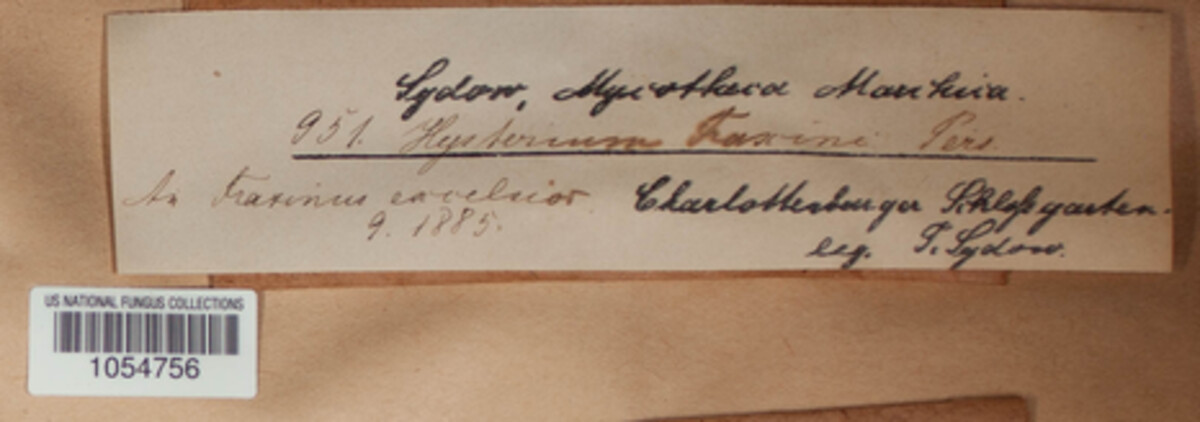 Sydow, Mycotheca Marchica.
951. Hysterium Fraxini Pers.
An Fraxinus excelsior. Charlottenburger Schloßgarten.
9. 1885.
leg. P. Sydow.
US NATIONAL FUNGUS COLLECTIONS
1054756